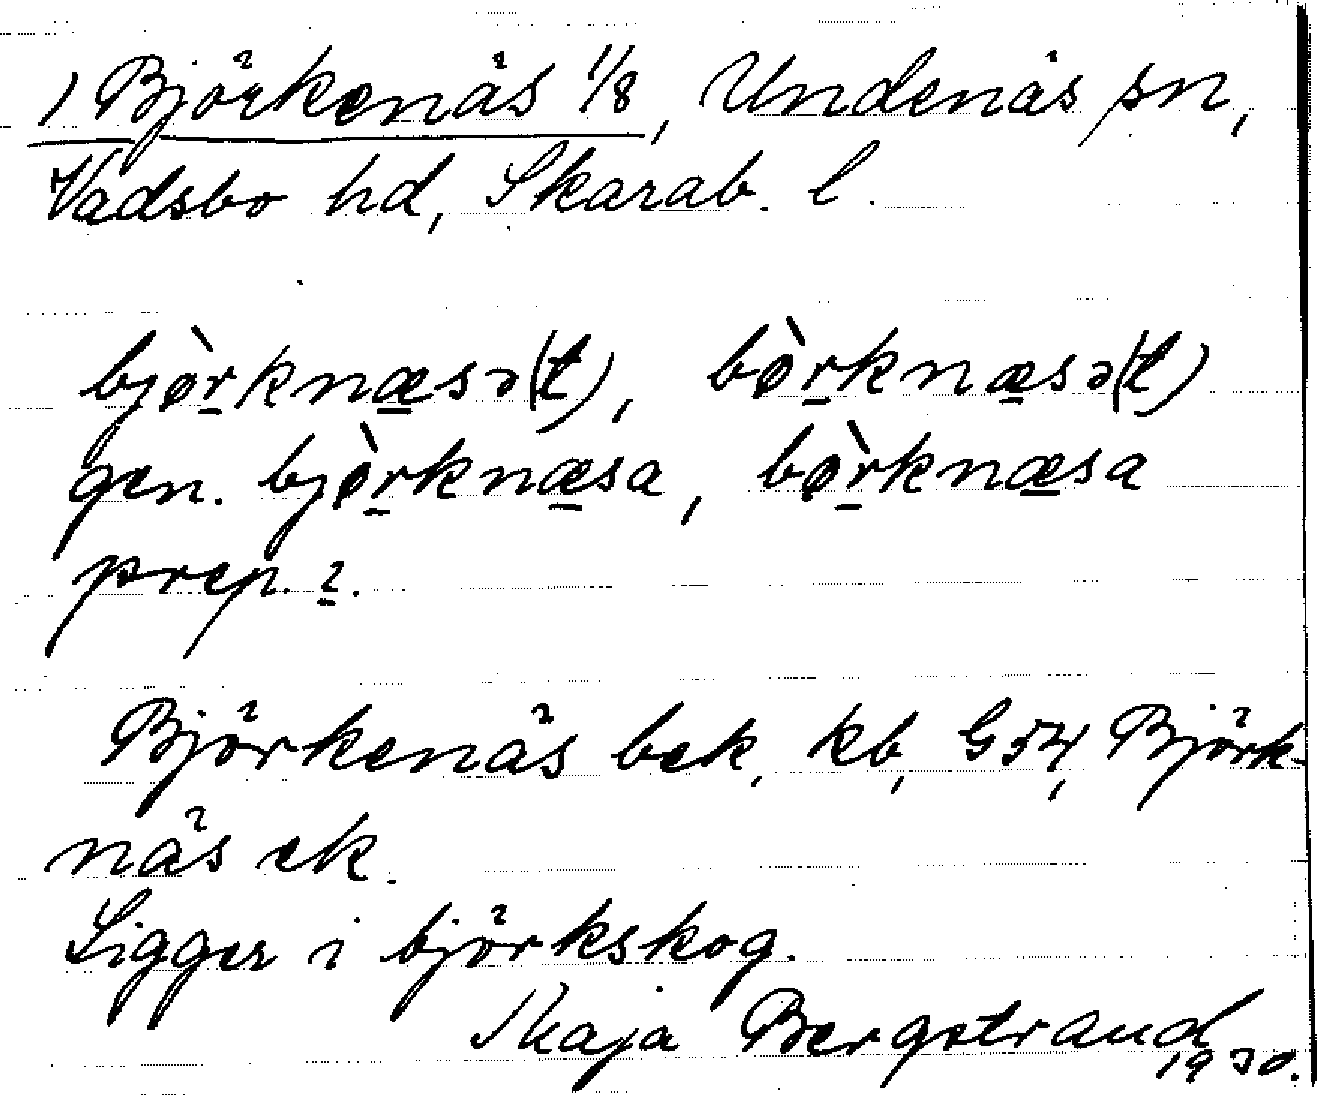 1 Björkenäs 1/8, Undenäs sn,
Vadsbo hd, Skarab. l.
bjørknæsə(t), børknæsə(t)
gen. bjørknæsa, børknæsa
prep. i.
Björkenäs bek, kb, G54, Björk-
näs ek.
Ligger i björkskog.
Kaja Bergstrand
1930.